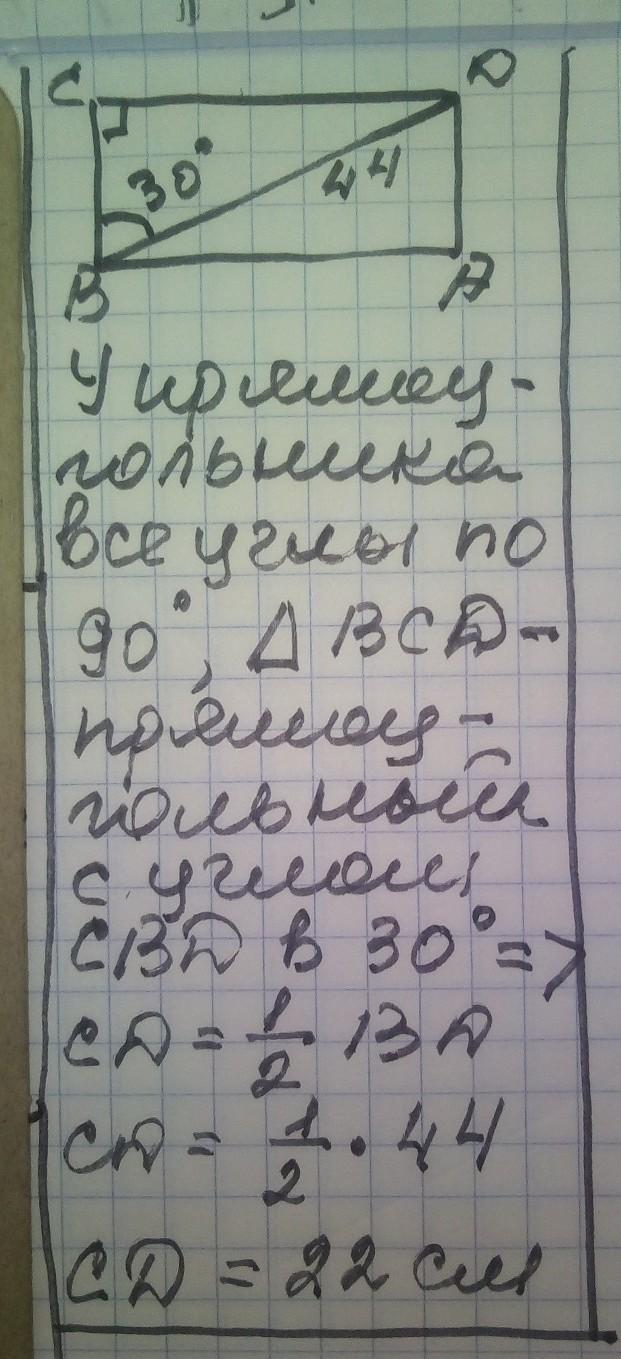 C D
30°
44
B A
У прямоу-
гольника
все углы по
90°, Δ BCD-
прямоу-
гольный
с углом
CBD в 30° =>
CD = 1/2 BD
CD = 1/2 · 44
CD = 22 см